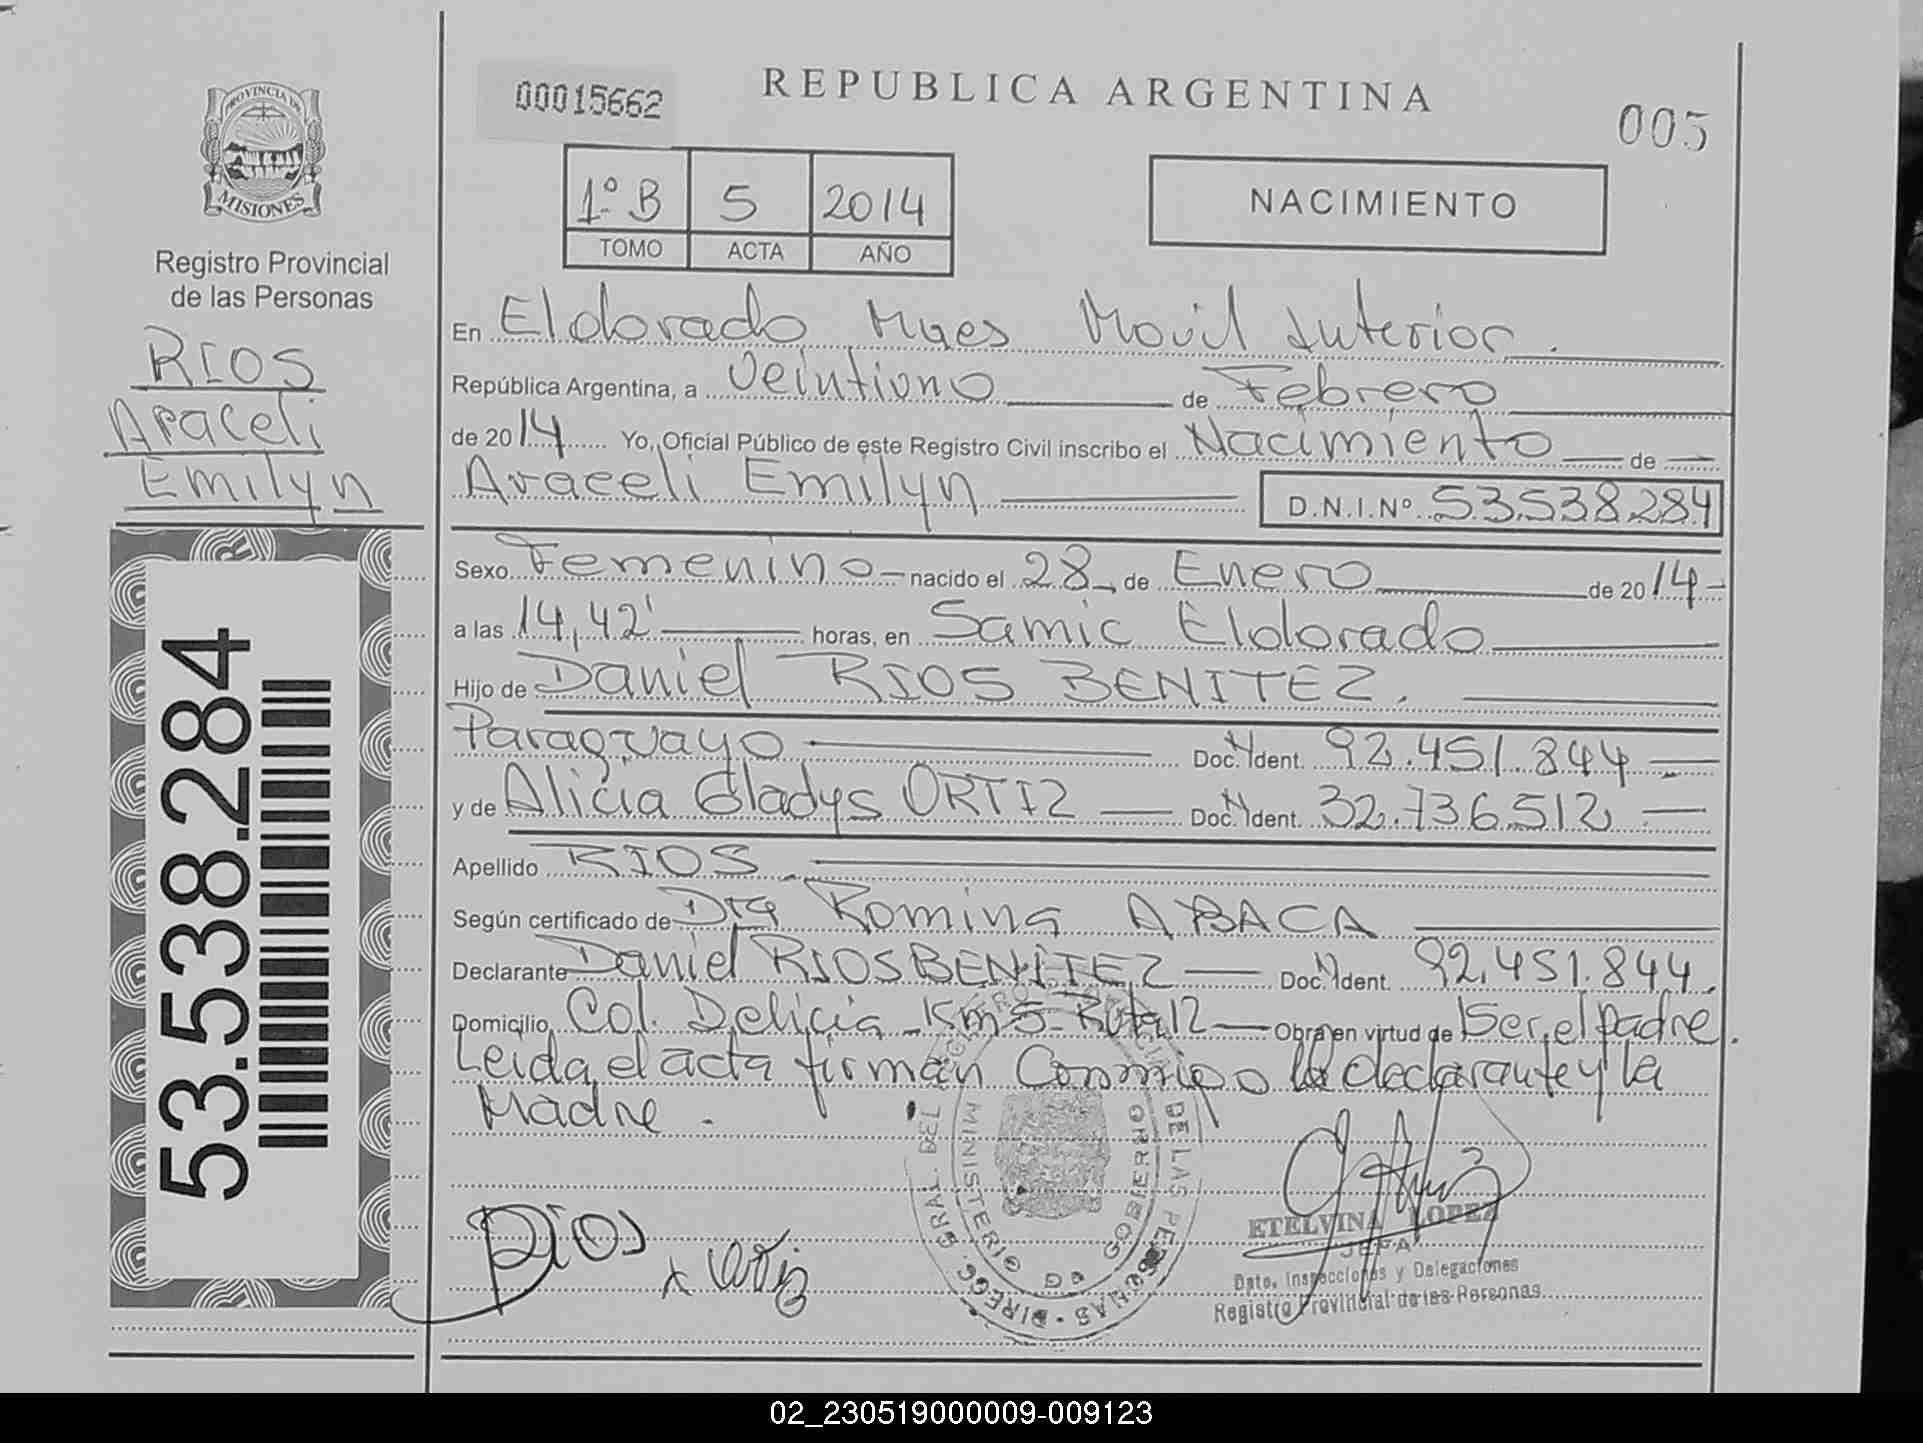 PROVINCIA DE
MISIONES
Registro Provincial
de las Personas
RIOS
Araceli
Emilyn
53.538.284
00015662
REPUBLICA ARGENTINA
005
1º B 5 2014
TOMO ACTA AÑO
NACIMIENTO
En Eldorado Mnes Movil Interior.
República Argentina, a Veintiuno de Febrero
de 2014 Yo, Oficial Público de este Registro Civil inscribo el Nacimiento de
Araceli Emilyn D.N.I.Nº 53538284
Sexo Femenino nacido el 28 de Enero de 2014
a las 14,42' horas, en Samic Eldorado
Hijo de Daniel RIOS BENITEZ.
Paraguayo Doc. N Ident. 92.451.844
y de Alicia Gladys ORTIZ Doc. N Ident. 32.736.512
Apellido RIOS
Según certificado de Dra Romina ABACA
Declarante Daniel RIOS BENITEZ Doc. N Ident. 92.451.844.
Domicilio Col. Delicia Km 5 Ruta 12 Obra en virtud de Ser el padre.
Leida el acta firman Conmigo el declarante y la
Madre.
DIREC. GRAL. DEL REGISTRO PROVINCIAL DE LAS PERSONAS
MINISTERIO DE GOBIERNO
Rios
x Ortiz
ETELVINA LOPEZ
JEFA
Dpto. Inspecciones y Delegaciones
Registro Provincial de las Personas
02_230519000009-009123